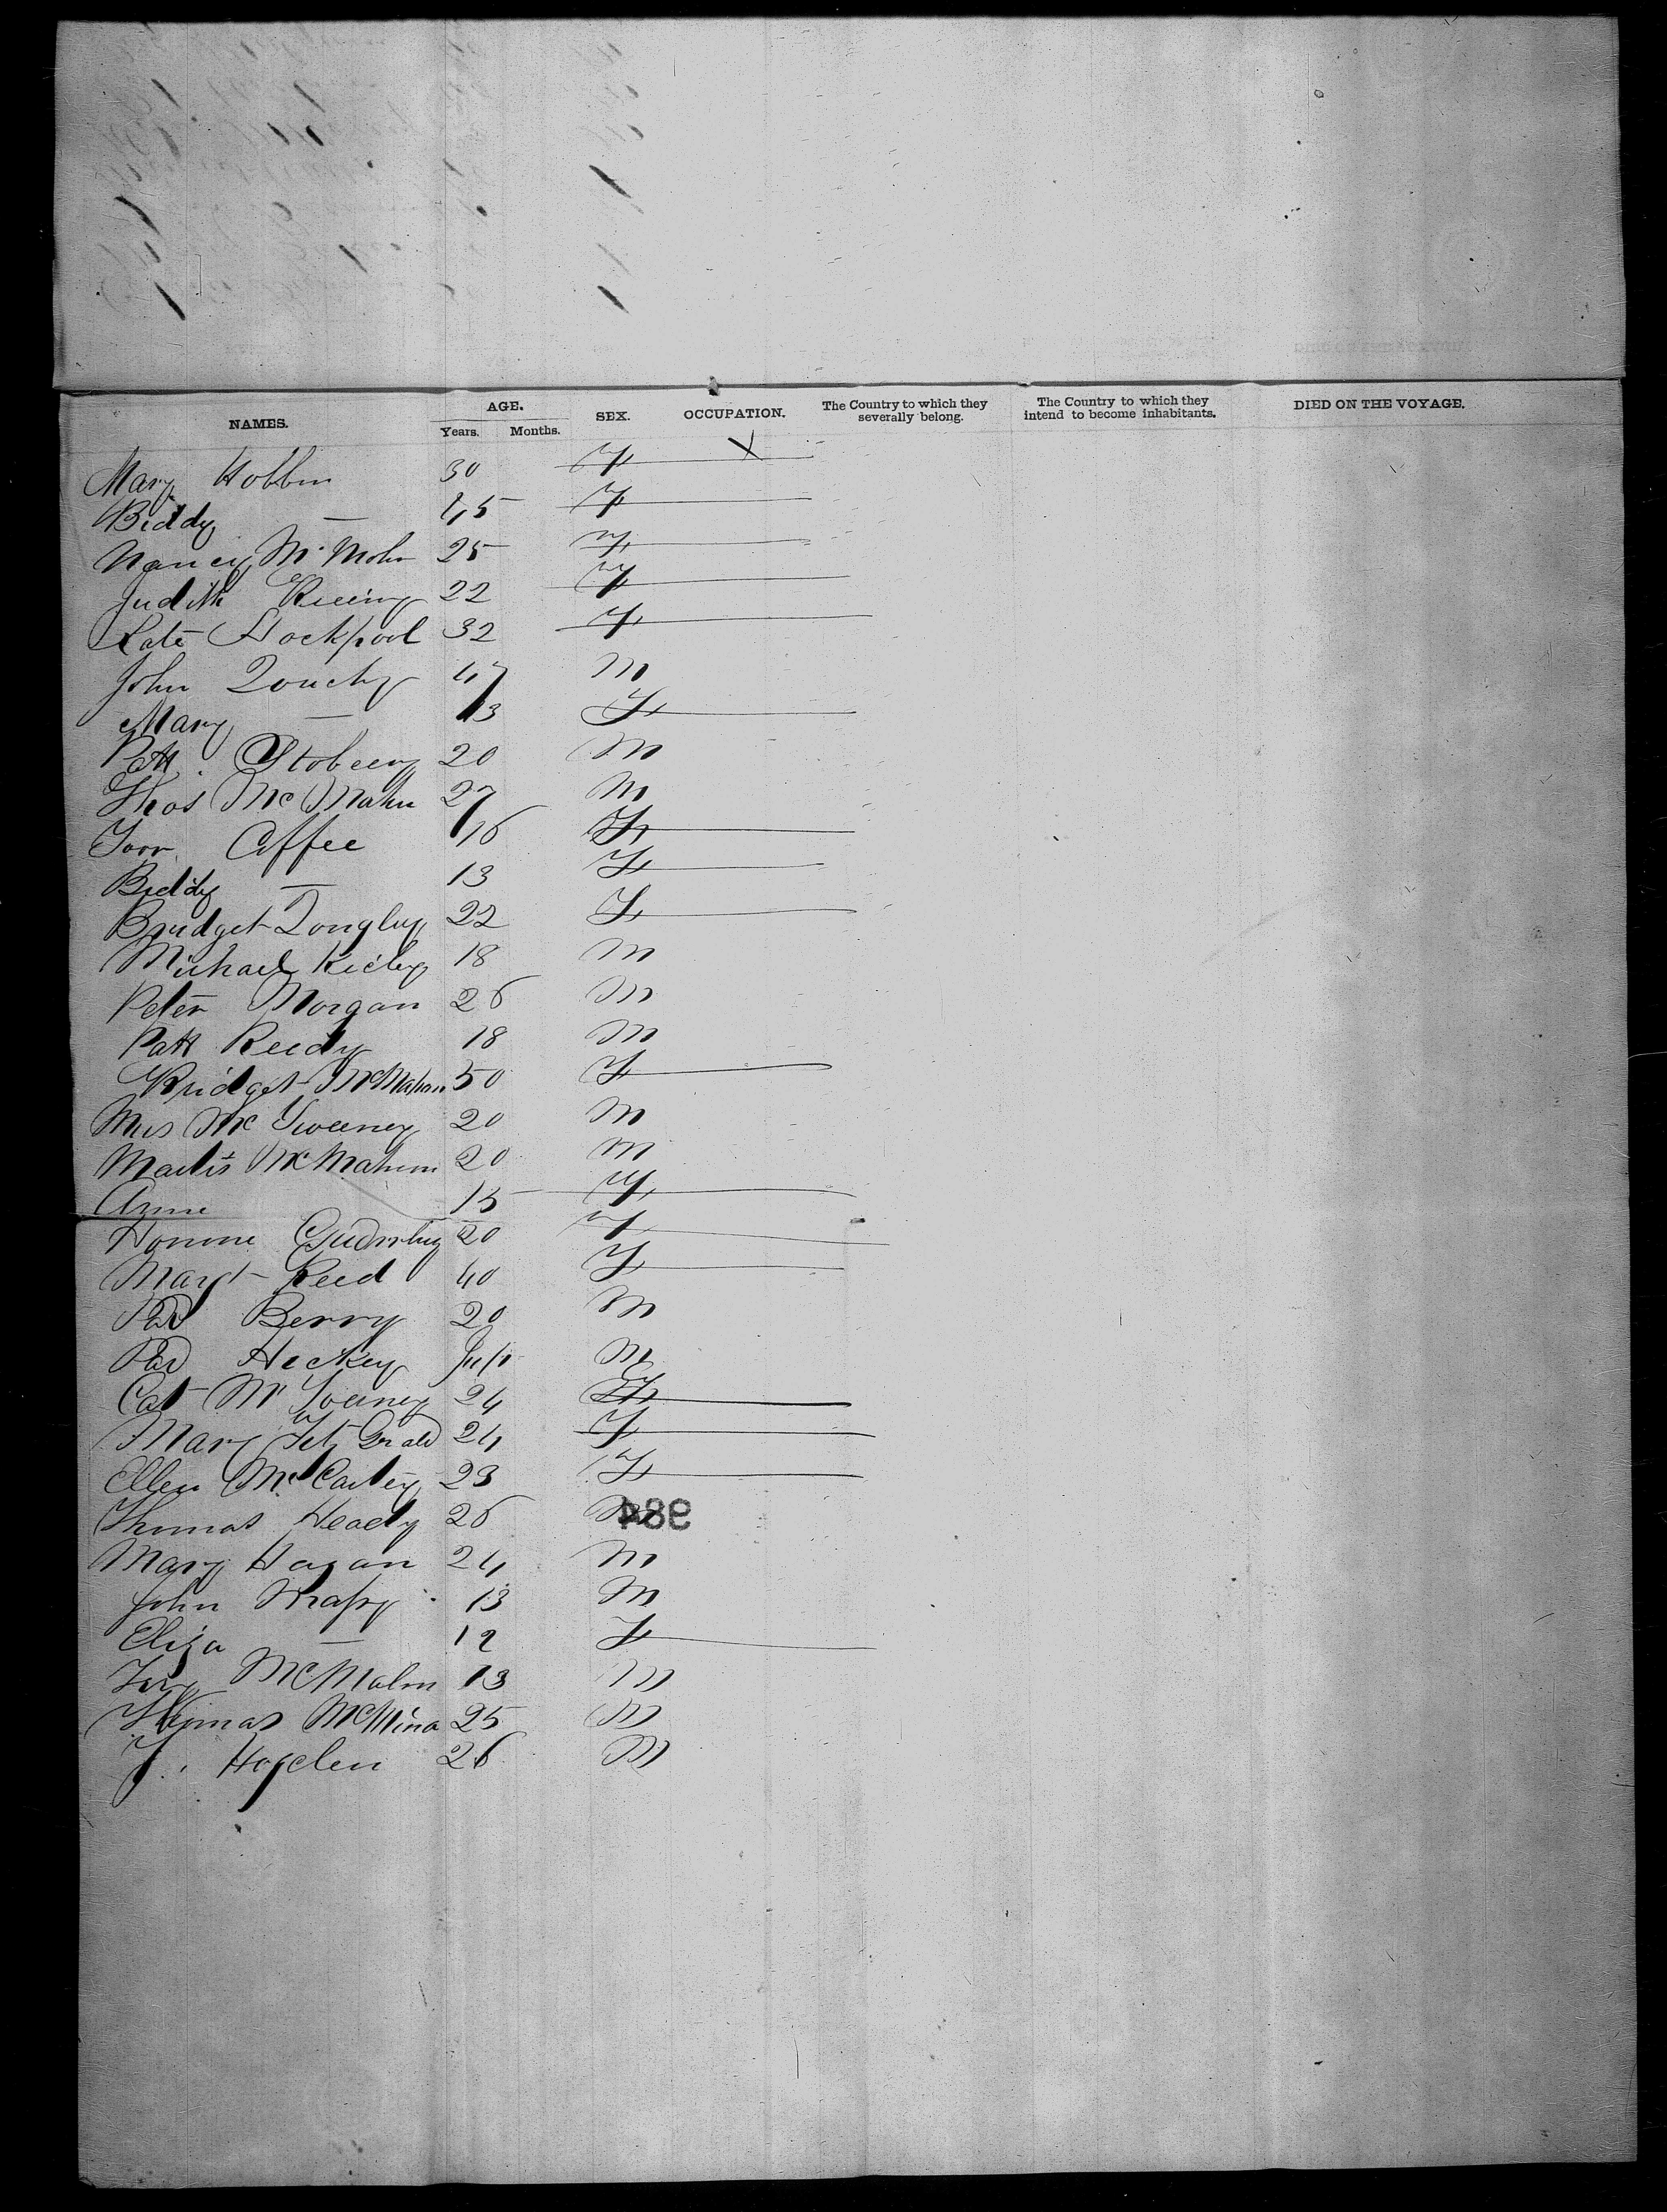 NAMES. AGE. SEX. OCCUPATION. The Country to which they severally belong. The Country to which they intend to become inhabitants. DIED ON THE VOYAGE.
Years. Months.
Mary Hobbin 30 F
Biddy — 45 F
Nancy McMohn 25 F
Judith 22 F
Kate Hockpool 32 F
John Touchy 47 M
Mary — 13 F
Patt 20 M
Thos McMahn 27 M
Coffee 16 F
Biddy — 13 F
Bridget 22 F
Michael Kieley 18 M
Peter Morgan 26 M
Patt Reedy 18 M
Bridget McMahan 50 F
Mc Sweeney 20 M
McMahon 20 M
Anne 15 F
20 F
Margt Reed 40 F
Pat Berry 20 M
Pat Hickey M
Cat Mc Sweeney 24 F
Mary Fitz Gerald 24 F
Ellen McCartey 23 F
Thomas Heady 26 M
984
Mary Hagan 24 M
John 13 M
Eliza — 12 F
McMahn 13 M
Thomas 25 M
J. Hogden 26 M